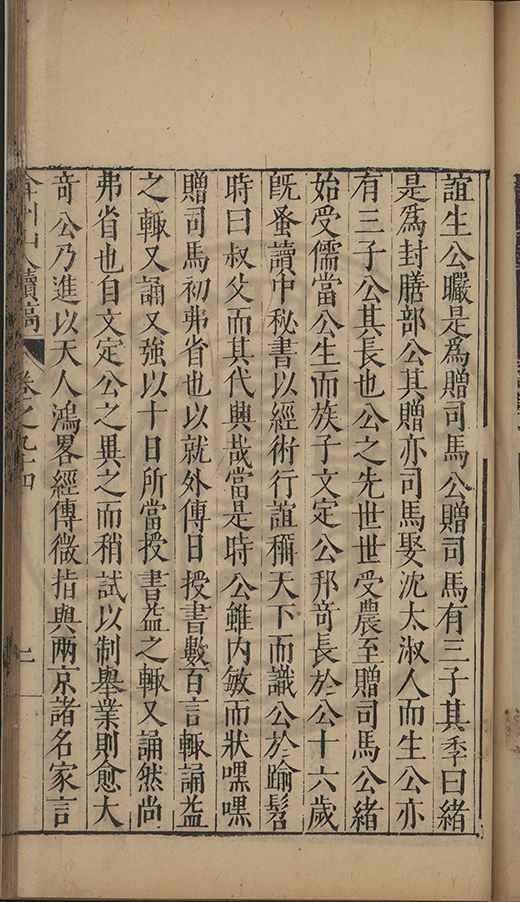 誼生公㬻是為贈司馬公贈司馬有三子其季曰緒
是為封膳部公其贈亦司馬娶沈太淑人而生公亦
有三子公其長也公之先世世受農至贈司馬公緒
始受儒當公生而族子文定公邦奇長於公十六歲
既蚤讀中秘書以經術行誼稱天下而識公於踰髫
時曰叔父而其代興哉當是時公雖内敏而狀嘿嘿
贈司馬初弗省也以就外傅日授書數百言輙誦益
之輙又誦又強以十日所當授書益之輙又誦然尚
弗省也自文定公之異之而稍試以制舉業則愈大
奇公乃進以天人鴻畧經傳微指與兩京諸名家言
弇州山人續稿 卷之九十四 二